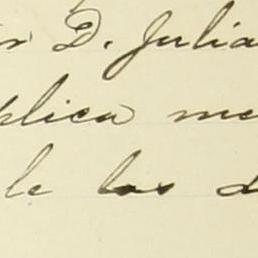 r D. Julia
plica me
le los d